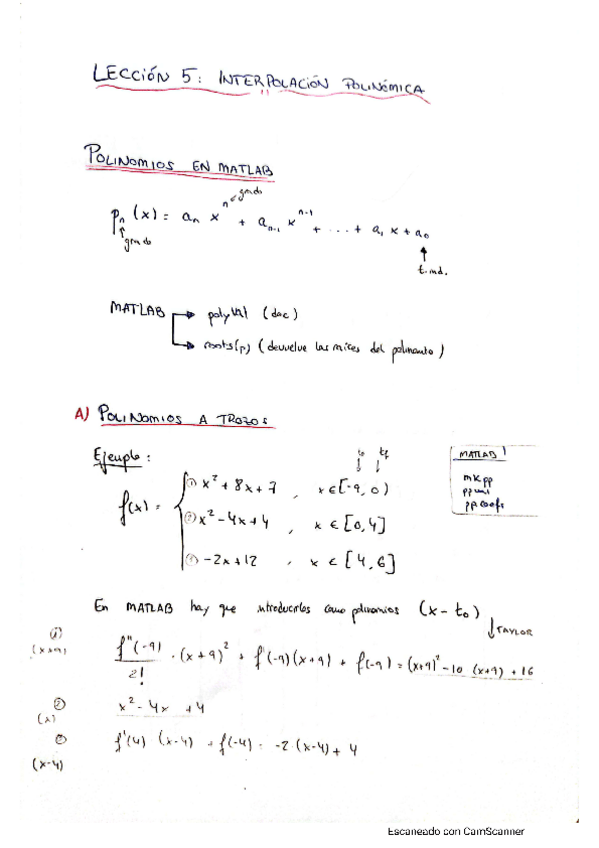 LECCIÓN 5: INTERPOLACIÓN POLINÓMICA
POLINOMIOS EN MATLAB
grado
pₙ(x) = aₙ xⁿ + aₙ₋₁ xⁿ⁻¹ + ... + a₁ x + a₀
grado
t.ind.
MATLAB → polyval (doc)
→ roots(p) (devuelve las raíces del polinomio)
A) POLINOMIOS A TROZOS
Ejemplo:
t₀ t₁
MATLAB
mkpp
ppval
f(x) =
① x² + 8x + 7 , x ∈ [-9, 0)
② x² - 4x + 4 , x ∈ [0, 4]
③ -2x + 12 , x ∈ [4, 6]
En MATLAB hay que introducirlos como polinomios (x - t₀)
↓ TAYLOR
① (x+9)
f''(-9)/2! · (x+9)² + f'(-9)(x+9) + f(-9) = (x+9)² - 10 (x+9) + 16
② (x)
x² - 4x + 4
(x-4)
f'(4) (x-4) + f(-4) = -2(x-4) + 4
Escaneado con CamScanner